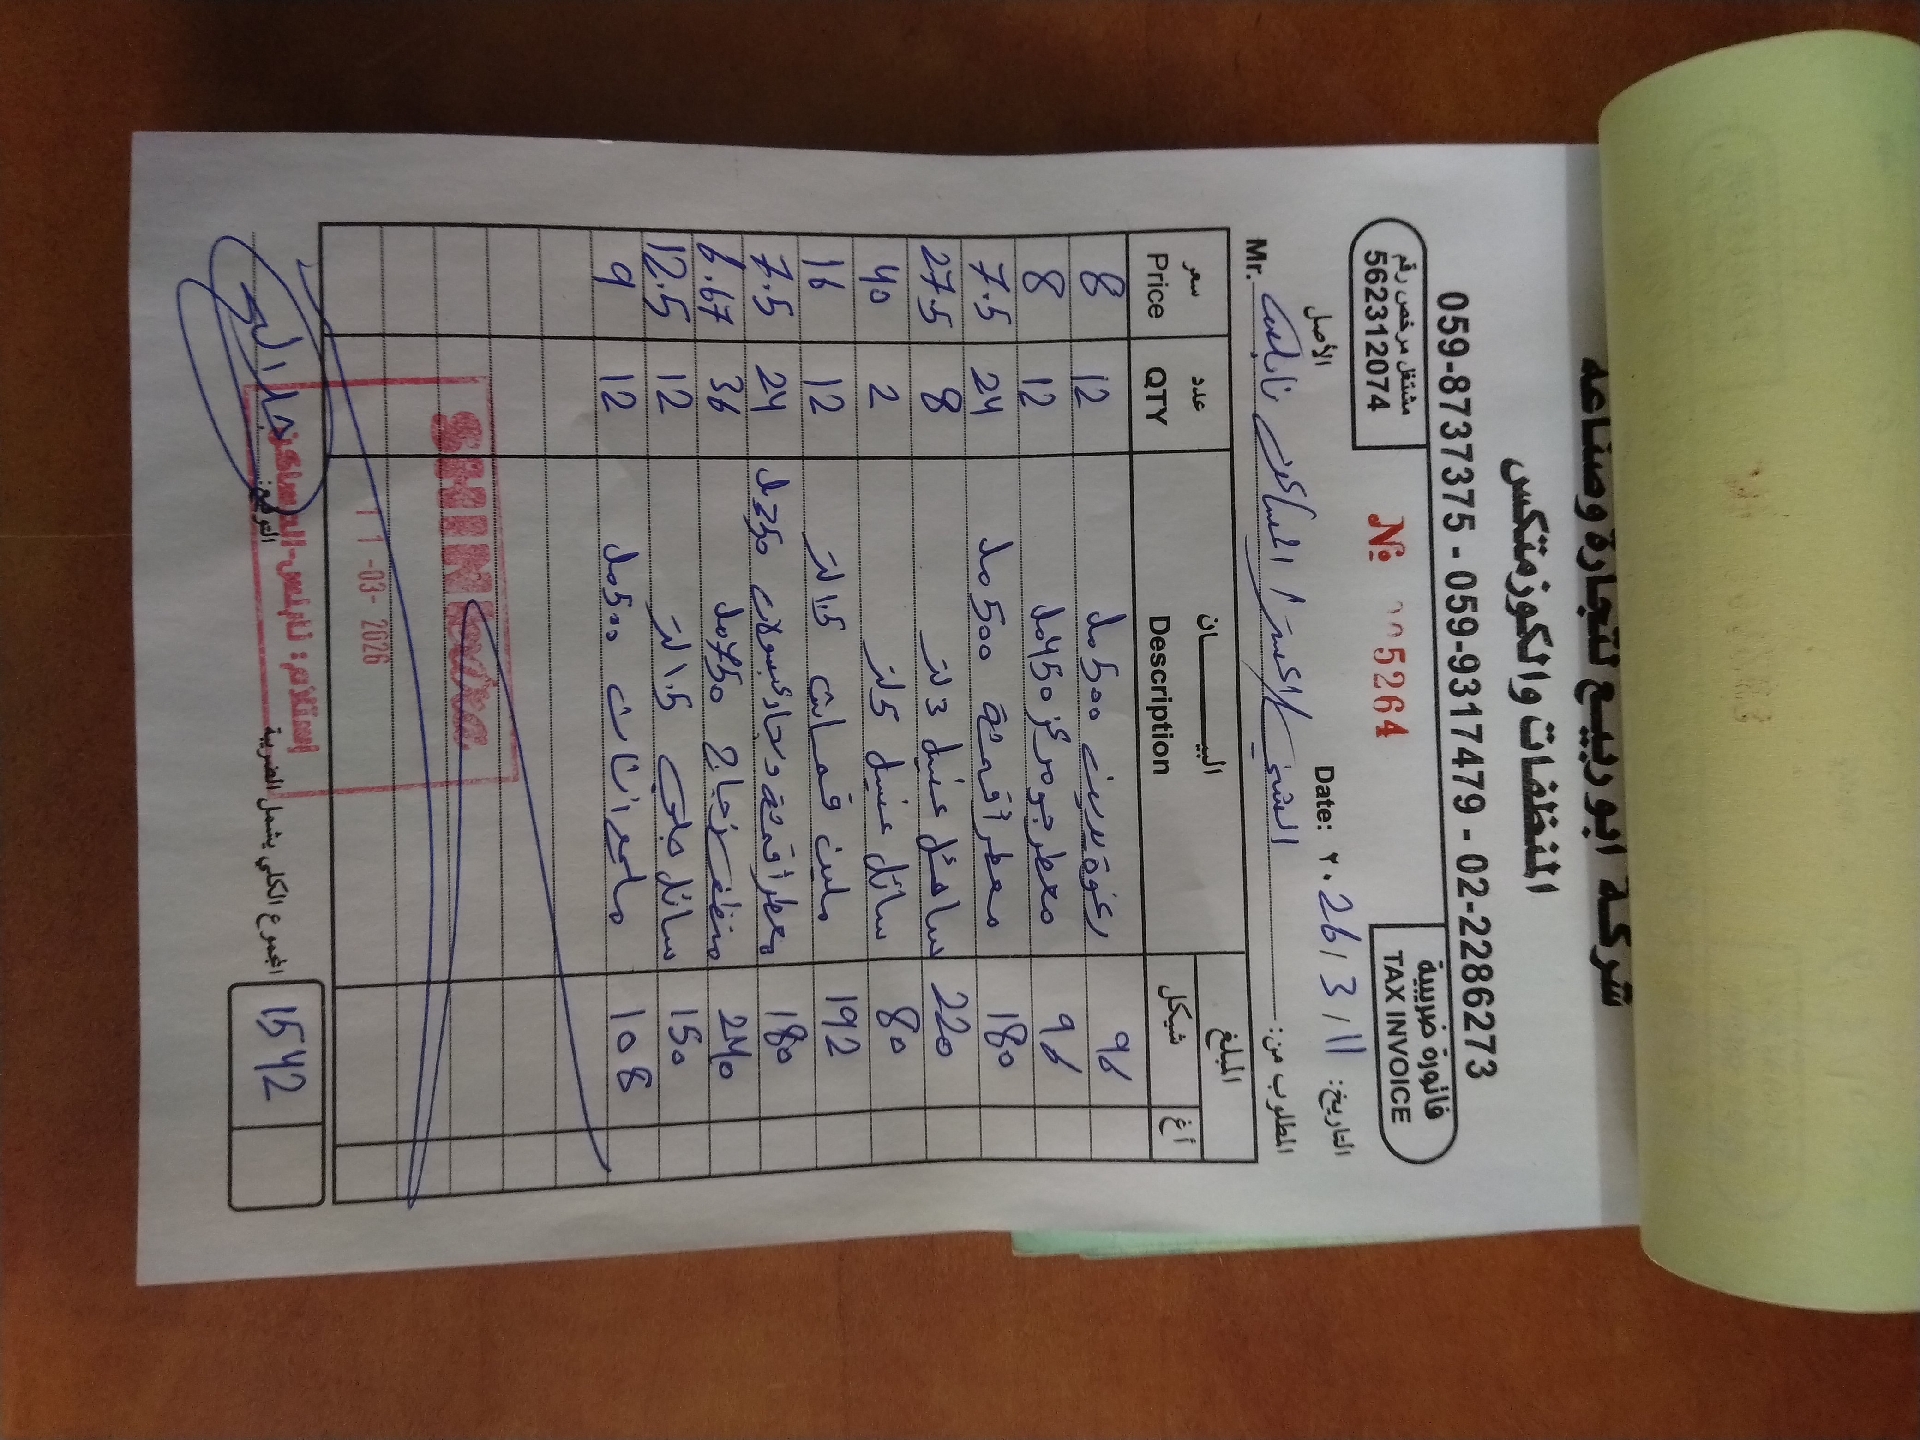 شركة ابو ربيع لتجارة وصناعة
المنظفات والكوزمتكس
059-8737375 - 059-9317479 - 02-2286273
مشتغل مرخص رقم
562312074
№ 005264
فاتورة ضريبية
TAX INVOICE
الأصل
Date: ٢٠26/3/11 التاريخ:
Mr. المساكن نابلس المطلوب من:
سعر عدد البيــــــان المبلغ
Price QTY Description شيكل أغ
8 12 500 مل 96
8 12 معطر جو مركز 450 مل 96
7.5 24 معطر اقمشة 500 مل 180
27.5 8 سائل غسيل 3 لتر 220
40 2 سائل غسيل 5 لتر 80
16 12 ملين قماش 1.5 لتر 192
7.5 24 معطر اقمشة وسجاد 180
6.67 36 منظف زجاج 750 مل 240
12.5 12 سائل جلي 1.5 لتر 150
9 12 500 مل 108
SHINI
11-03-2026
إستلام: نابلس-المساكن
التوقيع:
المجموع الكلي يشمل الضريبة
1542